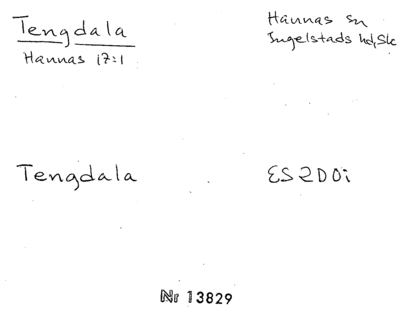 Tengdala
Hannas 17:1
Hannas sn
Ingelstads hd, Sk
Tengdala
ES 2D0i
Nr 13829